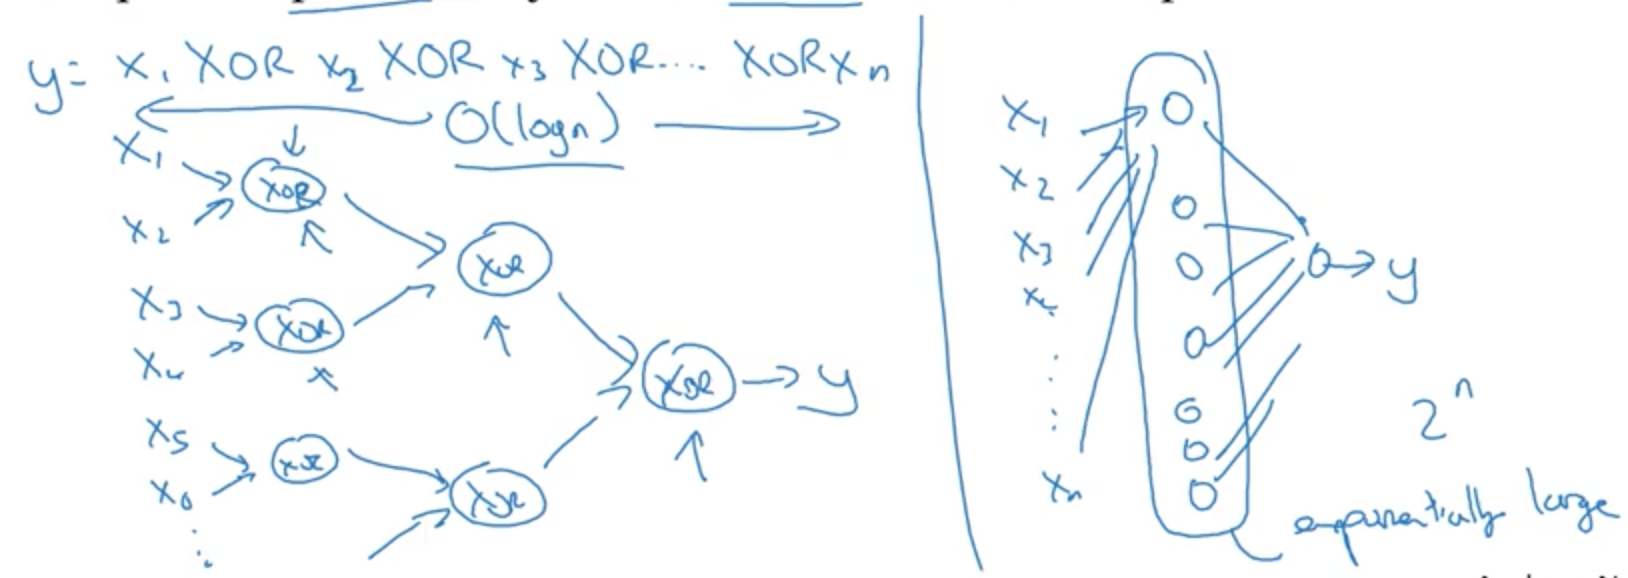 y = x₁ XOR x₂ XOR x₃ XOR.... XOR xₙ
O(log n)
x₁
XOR
x₂
XOR
x₃
XOR
x₄
XOR → y
x₅
XOR
x₆
XOR
x₁
x₂
x₃
x₄
xₙ
→ y
2ⁿ
exponentially large